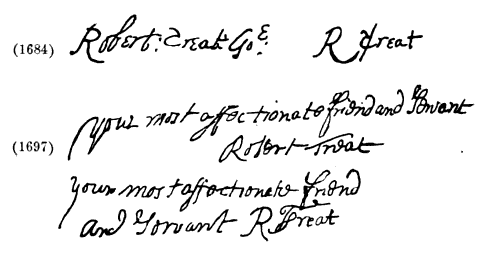 (1684) Robert: Treat: Goᵉ: R Treat
(1697) your most affectionate friend and Servant
Robert Treat
your most affectionate friend
and Servant R Treat